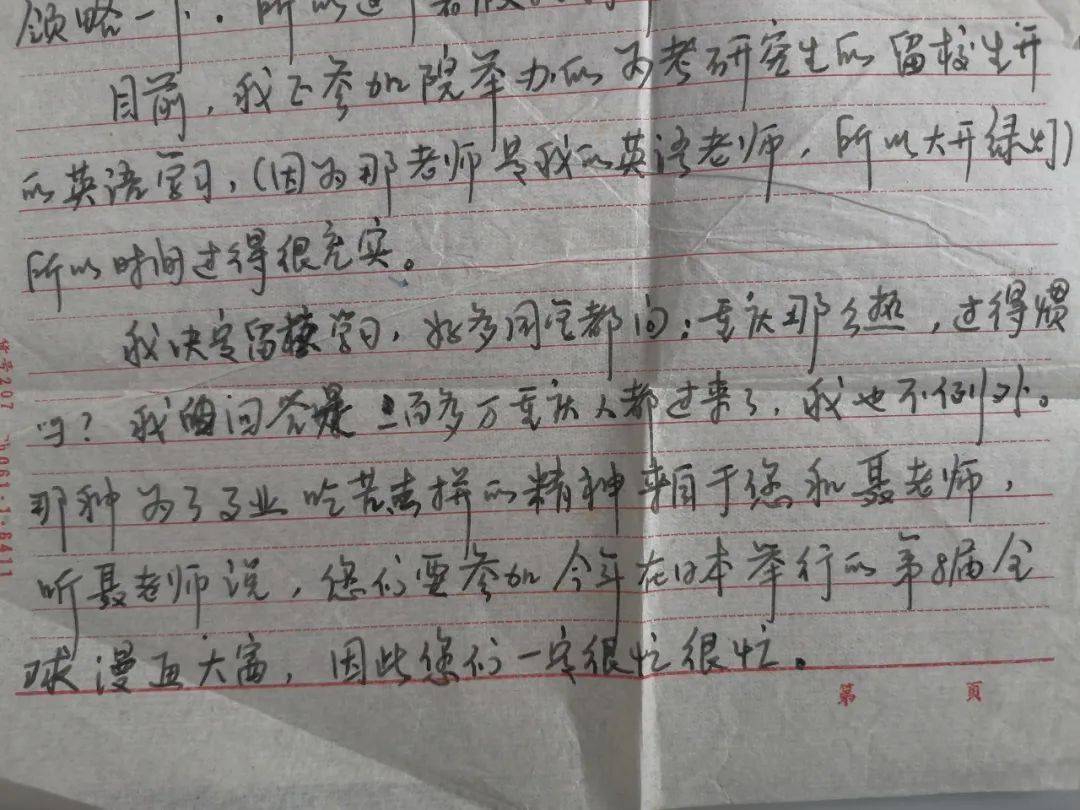 领略一下.所以这个暑假
目前,我正参加院举办的为考研究生的留校生开
的英语学习,(因为那老师是我的英语老师,所以大开绿灯)
所以时间过得很充实。
我决定留校学习,好多同学都问:重庆那么热,过得惯
吗?我的回答是 百多万重庆人都过来了,我也不例外。
那种为了事业吃苦去拼的精神来自于您和聂老师,
听聂老师说,您们要参加今年在日本举行的第8届全
球漫画大赛,因此您们一定很忙很忙。
第 頁